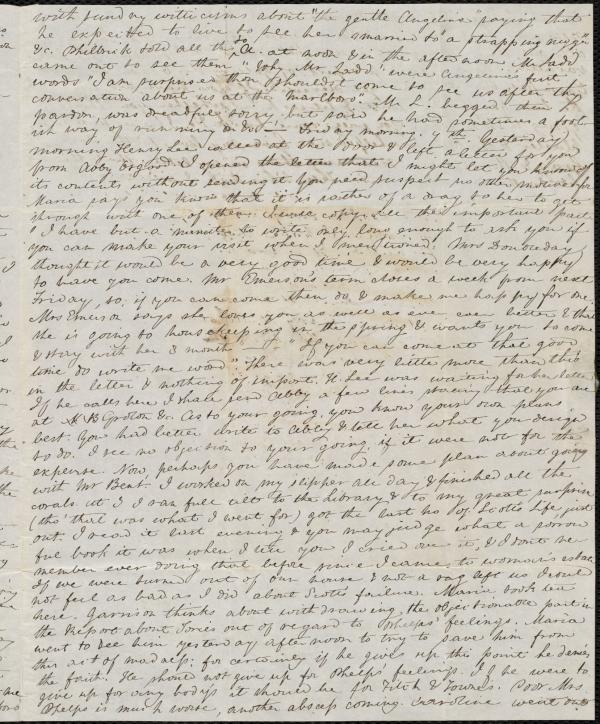 with sundry witticisms about "the gentle Angelina" saying that
he expected to live to see her married to "a strapping nigg"
&c. Philbrick told all this to A. at noon & in the afternoon Mr Ladd
came out to see them "Why Mr. Ladd," were Angelina's first
words "I am surprised thou shouldst come to see us after thy
conversation about us at the Marlboro'." Mr L. begged their
pardon, was dreadful sorry, but said he had sometimes a fool-
ish way of running on &c— Friday morning. 9th. Yesterday
morning Henry Lee called at the door & left a letter for you
from Abby Osgood. I opened the letter that I might let you know of
its contents without sending it. You need suspect no other motive for
Maria says you know that it is rather of a drag to her to get
through with one of these. I will copy all the important part.
"I have but a minute to write, only long enough to ask you if
you can make your visit when I mentioned. Mrs Doubleday
thought it would be a very good time & would be very happy
to have you come. Mr Emerson's term closes a week from next
Friday, so, if you can come then do & make me happy for one.
Mrs Emerson says she loves you as well as ever, even better & that
she is going to housekeeping in the spring & wants you to come
& stay with her 3 months. If you can come at that good
time do write me word". There was very little more than this
in the letter & nothing of import. H. Lee was waiting for her letter.
If he calls here I shall send Abby a few lines stating that you are
at Groton &c. As to your going, you know your own plans
best. You had better write to Abby & tell her what you design
to do. I see no objection to your going if it were not for the
expense. Now perhaps you have made some plan about going
with Mr Bent. I worked on my slipper all day & finished all the
corals at 5 I ran full tilt to the Library & to my great surprise
(tho' that was what I went for) got the last no. of Scott's Life just
out. I read it last evening & you may judge what a sorrow-
ful book it was when I tell you I cried over it, & I don't re-
member ever doing that before since I came to woman's estate.
If we were burned out of our house & not a rag left us I should
not feel as bad as I did about Scott's failure. Maria took tea
here. Garrison thinks about withdrawing the objectionable part in
the Report about Tories out of regard to Phelps' feelings. Maria
went to see him yesterday afternoon to try to save him from
this act of madness; for certainly if he gives up this point he denies
the faith. He should not give up for Phelps' feelings. If he were to
give up for any body's it should be for Fitch & Towne's. Poor Mrs
Phelps is much worse, another abscess coming. Caroline went out